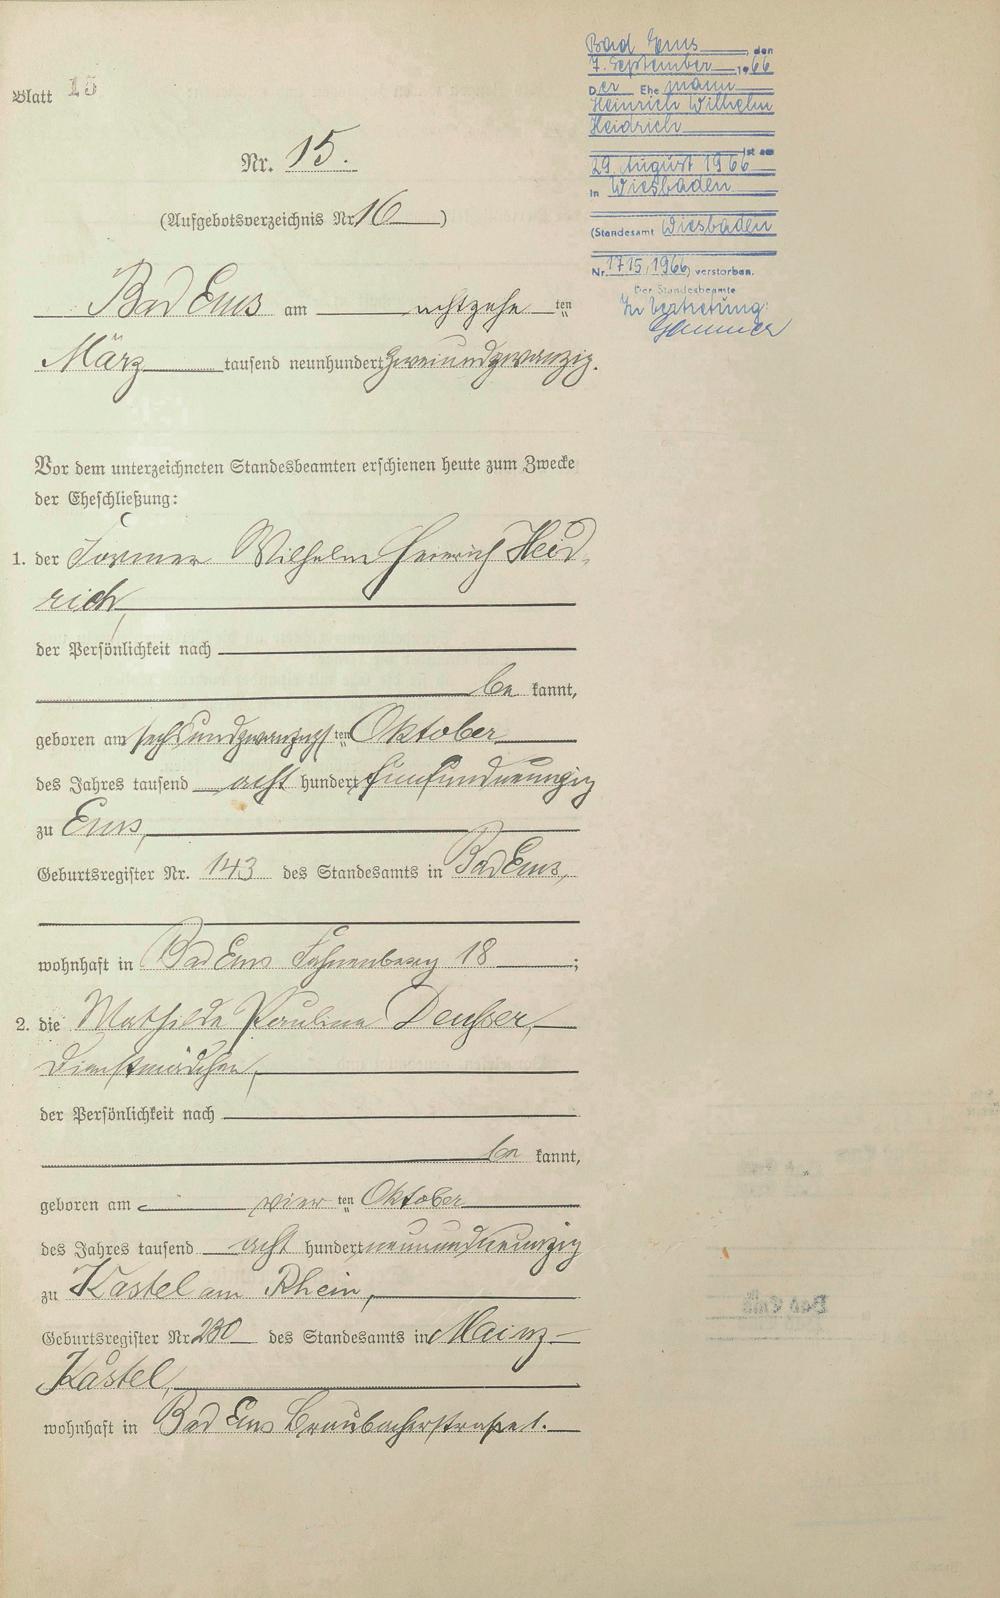 Blatt 15
Bad Ems, den
7. September 1966
Der Ehemann
Heinrich Wilhelm
Heidrich
ist am
29. August 1966
in Wiesbaden
(Standesamt Wiesbaden
Nr. 1715/1966) verstorben.
Der Standesbeamte
In Vertretung:
Nr. 15.
(Aufgebotsverzeichnis Nr. 16)
Bad Ems am achtzehnten
März tausend neunhundert zweiundzwanzig.
Vor dem unterzeichneten Standesbeamten erschienen heute zum Zwecke
der Eheschließung:
1. der Former Wilhelm Heinrich Heid-
rich,
der Persönlichkeit nach
bekannt,
geboren am sechsundzwanzigsten Oktober
des Jahres tausend acht hundert fünfundneunzig
zu Ems,
Geburtsregister Nr. 143 des Standesamts in Bad Ems,
wohnhaft in Bad Ems Fahnenberg 18;
2. die Mathilde Pauline Deußer,
Dienstmädchen,
der Persönlichkeit nach
bekannt,
geboren am vierten Oktober
des Jahres tausend acht hundert neunundneunzig
zu Kastel am Rhein,
Geburtsregister Nr. 230 des Standesamts in Mainz-
Kastel,
wohnhaft in Bad Ems Braubacherstraße 1.